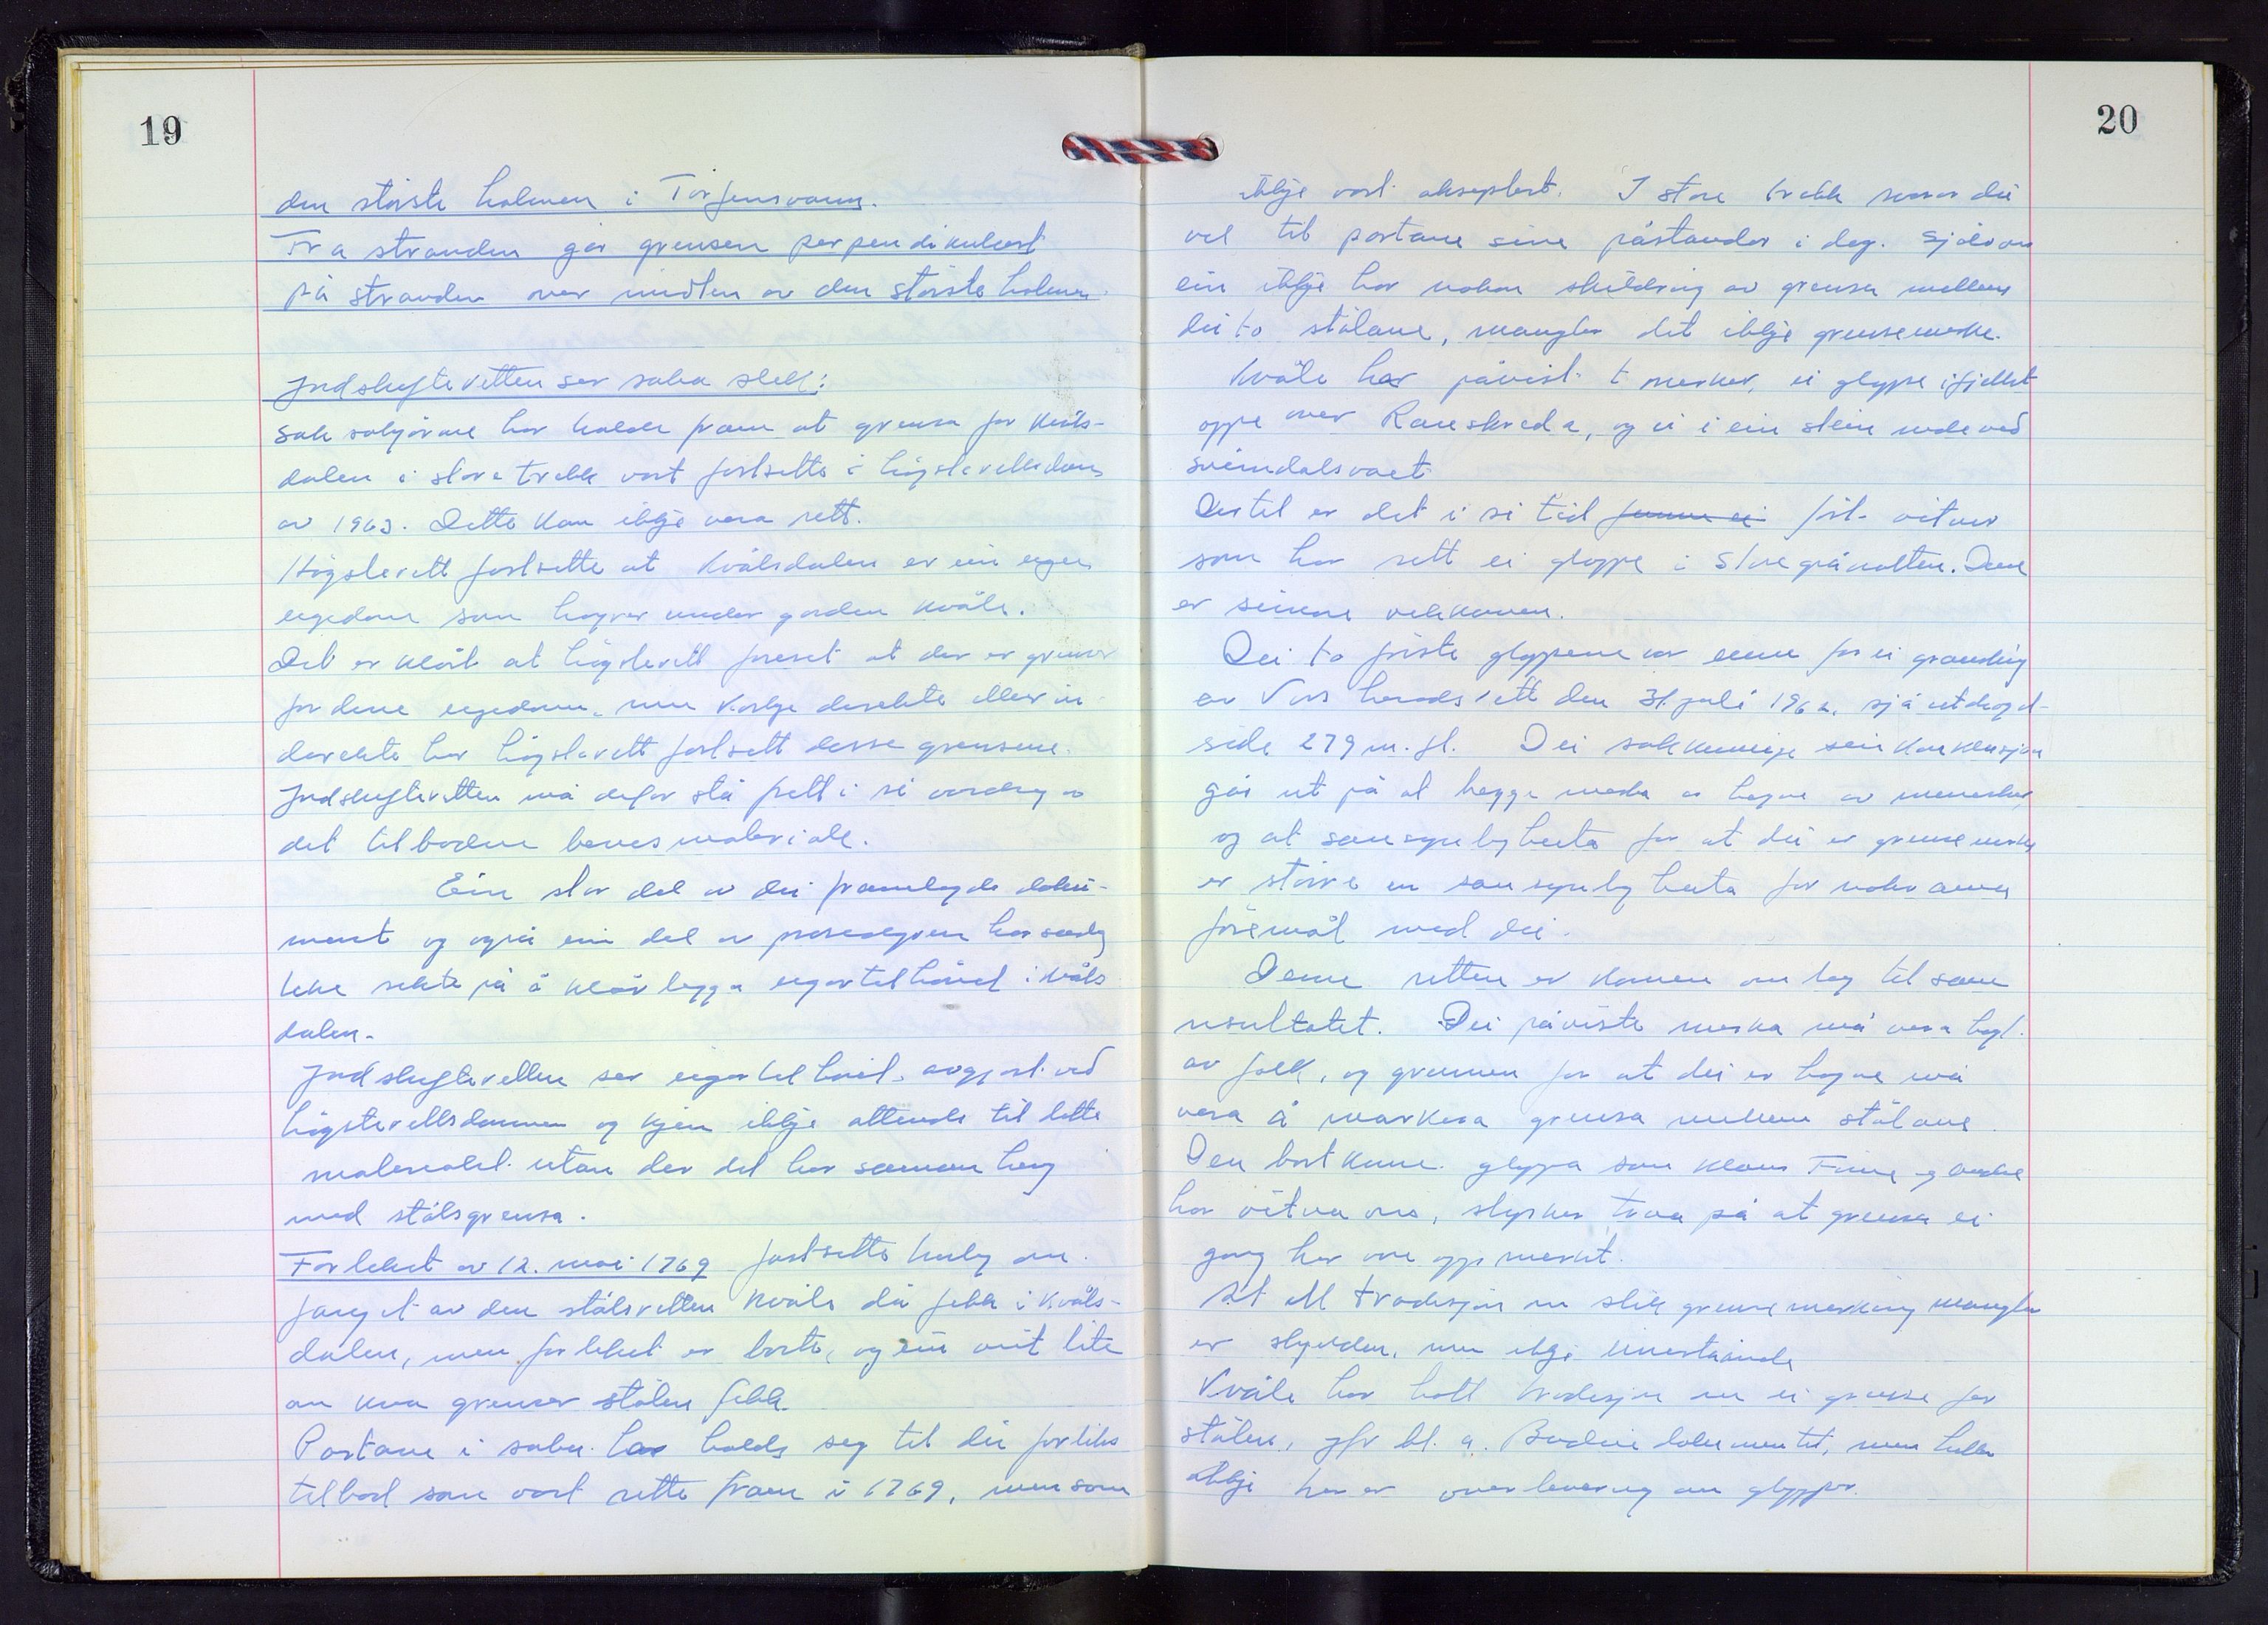 19
den største holmen i Torfinsvann.
Fra stranden går grensen perpendikulært
på stranden over midten av den største holmen.
Jordskifteretten ser saka slik:
Saksøkjarane har halde fram at grensa for Kvåls-
dalen i store trekk vart fastsette i högsterettsdom
av 1963. Dette kan ikkje vera rett.
Högsterett fastsette at Kvålsdalen er ein eigen
eigedom som høyrer under garden Kvåle.
Det er klårt at högsterett foreset at der er grenser
for denne eigedomen, men korkje direkte eller in-
direkte har högsterett fastsett desse grensene.
Jordskifteretten må difor stå fritt i si vurdering av
det tilbodne bevismateriale.
Ein stor del av dei framlagde doku-
ment og også ein del av prosedyren har
sikte på å klårleggja eigartilhøvet i Kvåls
dalen.
Jordskifteretten ser eigartilhövet avgjort ved
högsterettsdommen og kjem ikkje attende til dette
materialet utan der det har samanheng
med stölsgrensa.
Forliket av 12. mai 1769 fastsette om-
fanget av den stölsretten Kvåle då fekk i Kvåls-
dalen, men forliket er borte, og ein veit lite
om kva grenser stölen fekk.
Partane i saka har halde seg til dei forliks
tilbod som vart sette fram i 1769, men som
20
ikkje vart akseptert. I store trekk svarar dei
vel til partane sine påstander i dag. Sjølv om
ein ikkje har nokon skildring av grensa mellom
dei to stölane, manglar det ikkje grensemerke.
Kvåle har påvist to merker, ei gloppe i fjellet
oppe over Raueskreda, og ei i ein stein nede ved
Sveindalsvaet
Dertil er det i si tid ført vitner
som har sett ei gloppe i Store grånatten. Denne
er seinare vekkomen.
Dei to første gloppene var emne for ei gransking
av Voss heradsrett den 31. juli 1962, sjå utdraget
side 279 m. fl. Dei sakkunnige sin konklusjon
går ut på at begge merka er hogne av mennesker
og at sannsynlegheita for at dei er grensemerker
er større en sannsynlegheita for noko anna
föremål med dei.
Denne retten er komen om lag til same
resultatet. Dei påviste merka må vera hogd
av folk, og grunnen for at dei er hogne må
vera å markera grensa mellom stölane.
Den bortkomne gloppa som Klaus Finne og andre
har vitna om, styrker trua på at grensa ei
gong har vore oppmerkt.
At all tradisjon om slik grensemerking mangler
er , men ikkje
Kvåle har hatt tradisjon om ei grense for
stölen, jfr bl. a. dokumentet, men heller
ikkje her er overlevering om glopper.